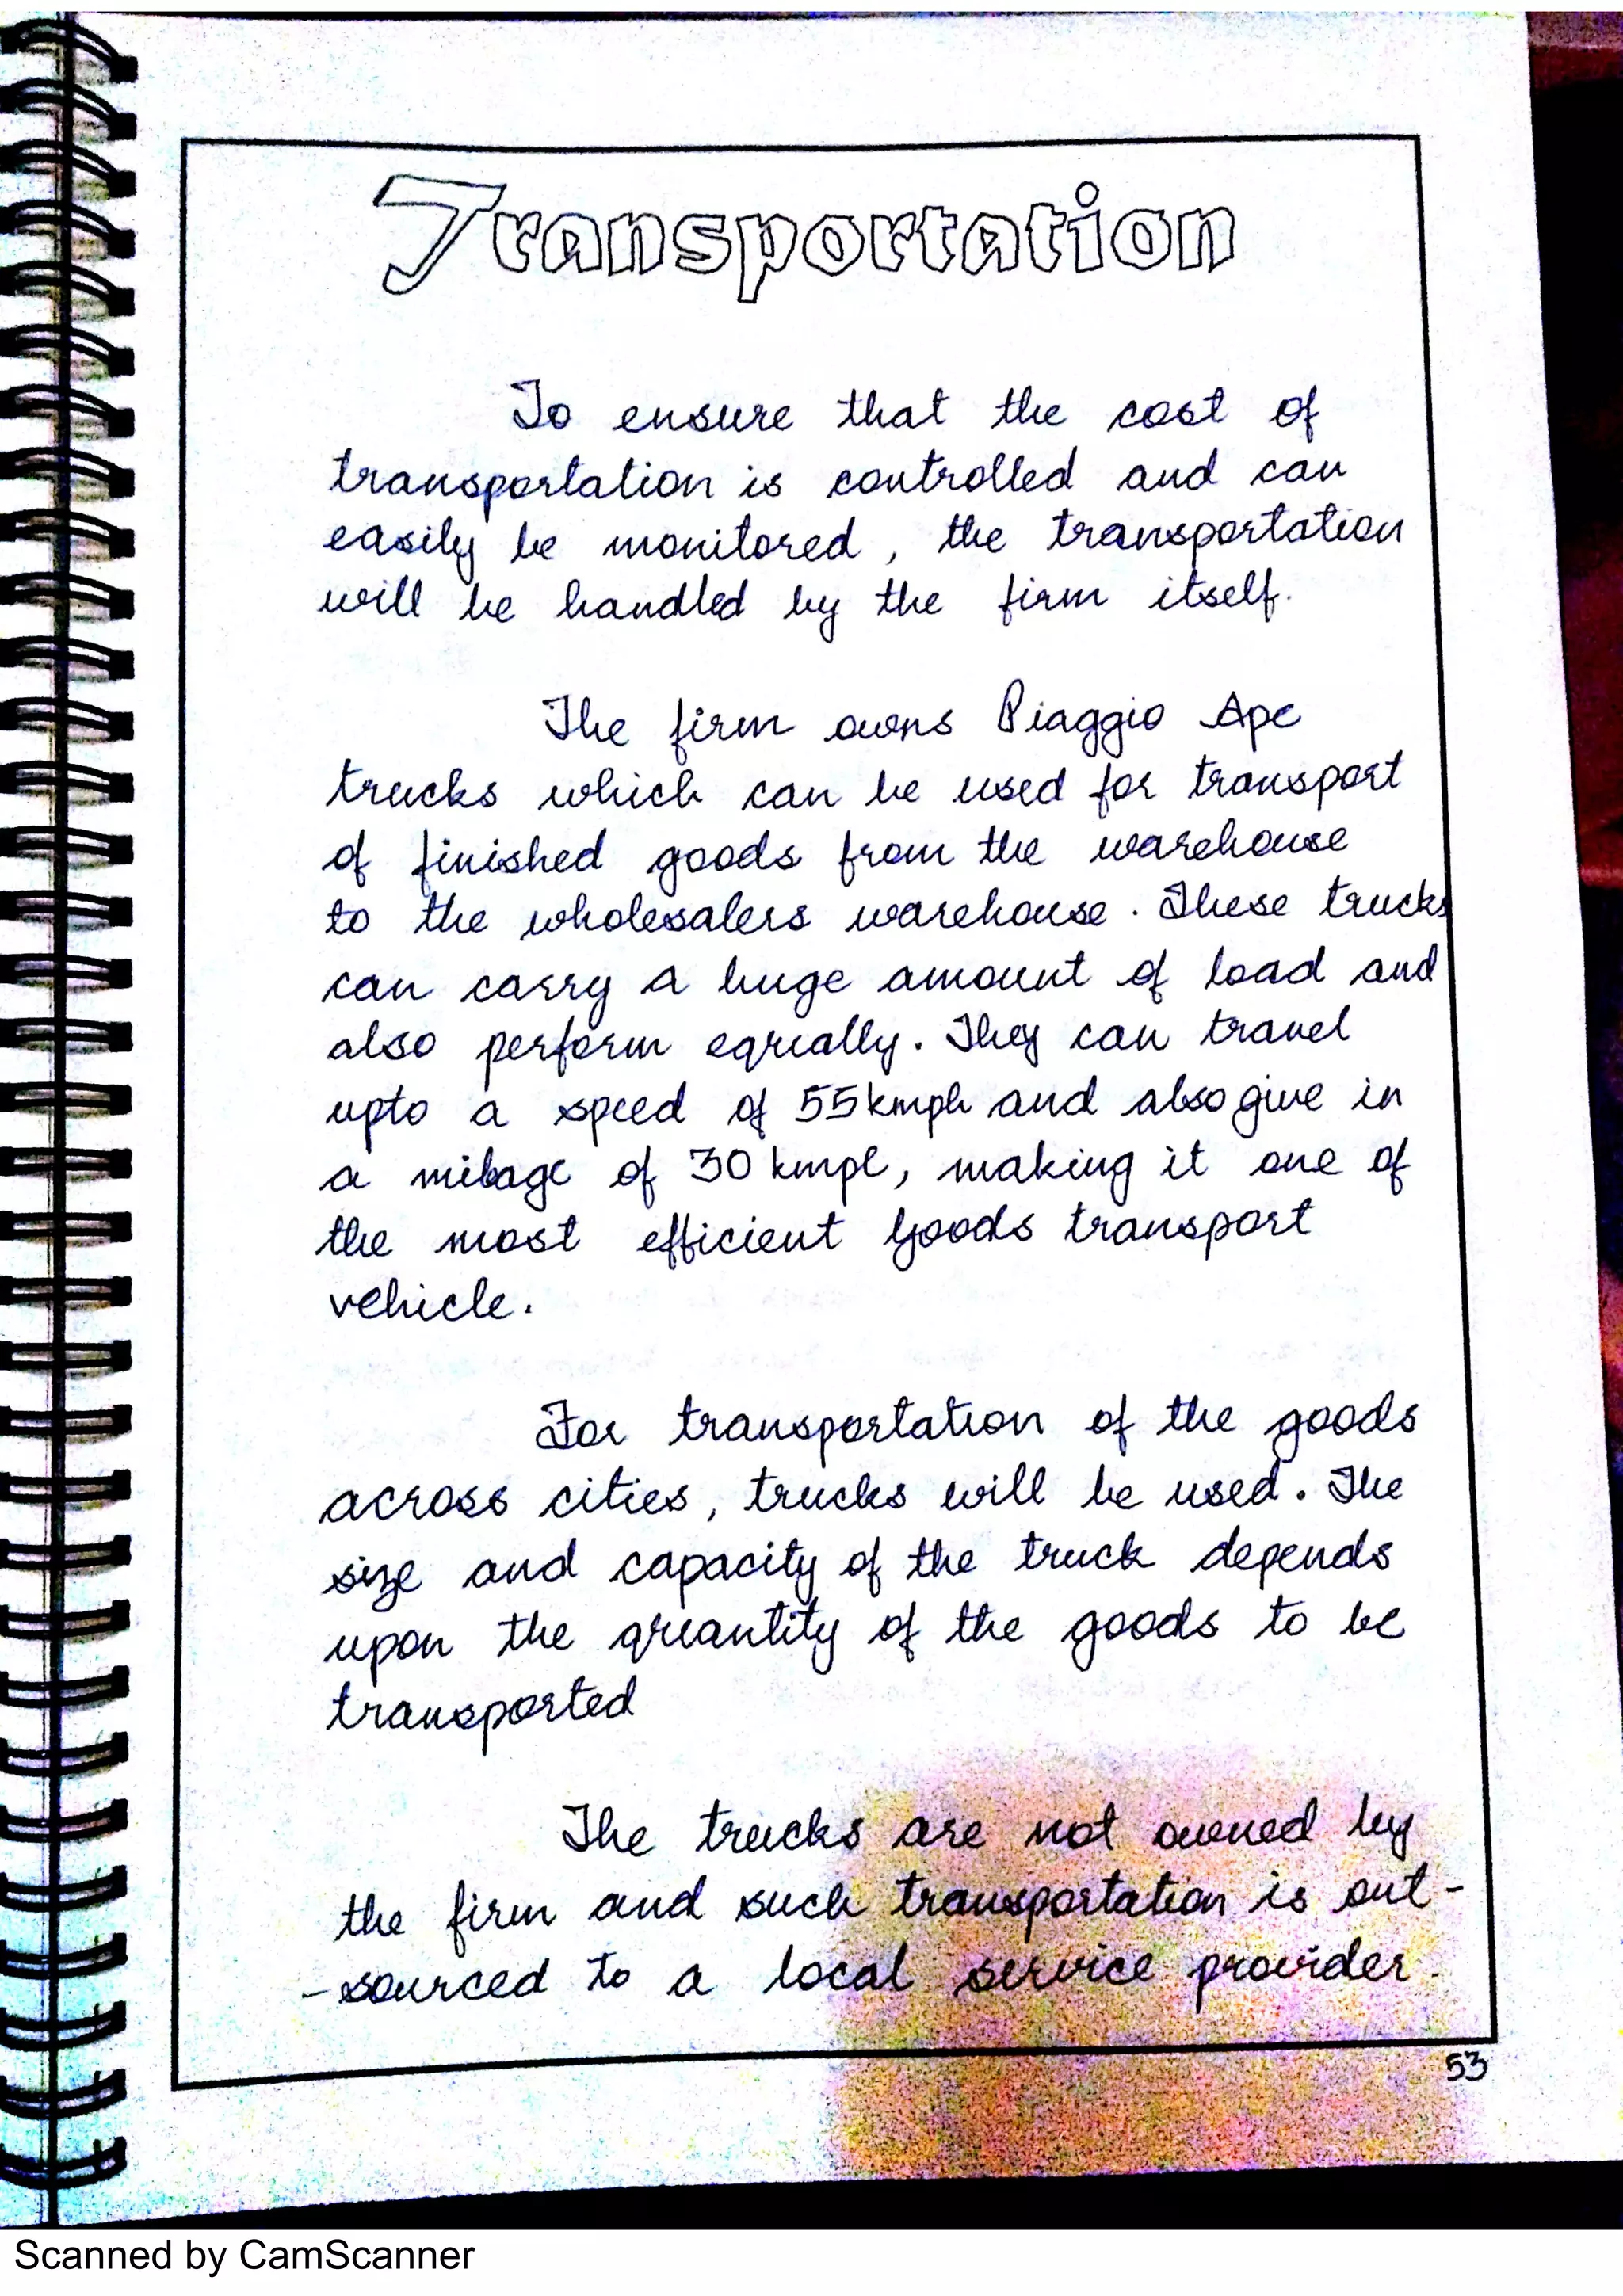 Transportation
To ensure that the cost of
transportation is controlled and can
easily be monitored, the transportation
will be handled by the firm itself.
The firm owns Piaggio Ape
trucks which can be used for transport
of finished goods from the warehouse
to the wholesalers warehouse. These trucks
can carry a huge amount of load and
also perform equally. They can travel
upto a speed of 55kmph and also give in
a milage of 30 kmpl, making it one of
the most efficient goods transport
vehicle.
For transportation of the goods
across cities, trucks will be used. The
size and capacity of the truck depends
upon the quantity of the goods to be
transported
The trucks are not owned by
the firm and such transportation is out-
-sourced to a local service provider.
53
Scanned by CamScanner